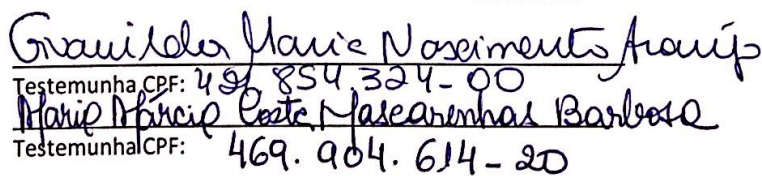 Givanilda Maria Nascimento Araujo
Testemunha CPF: 491.854.324-00
Maria Márcia Costa Mascarenhas Barbosa
Testemunha CPF: 469.904.614-20